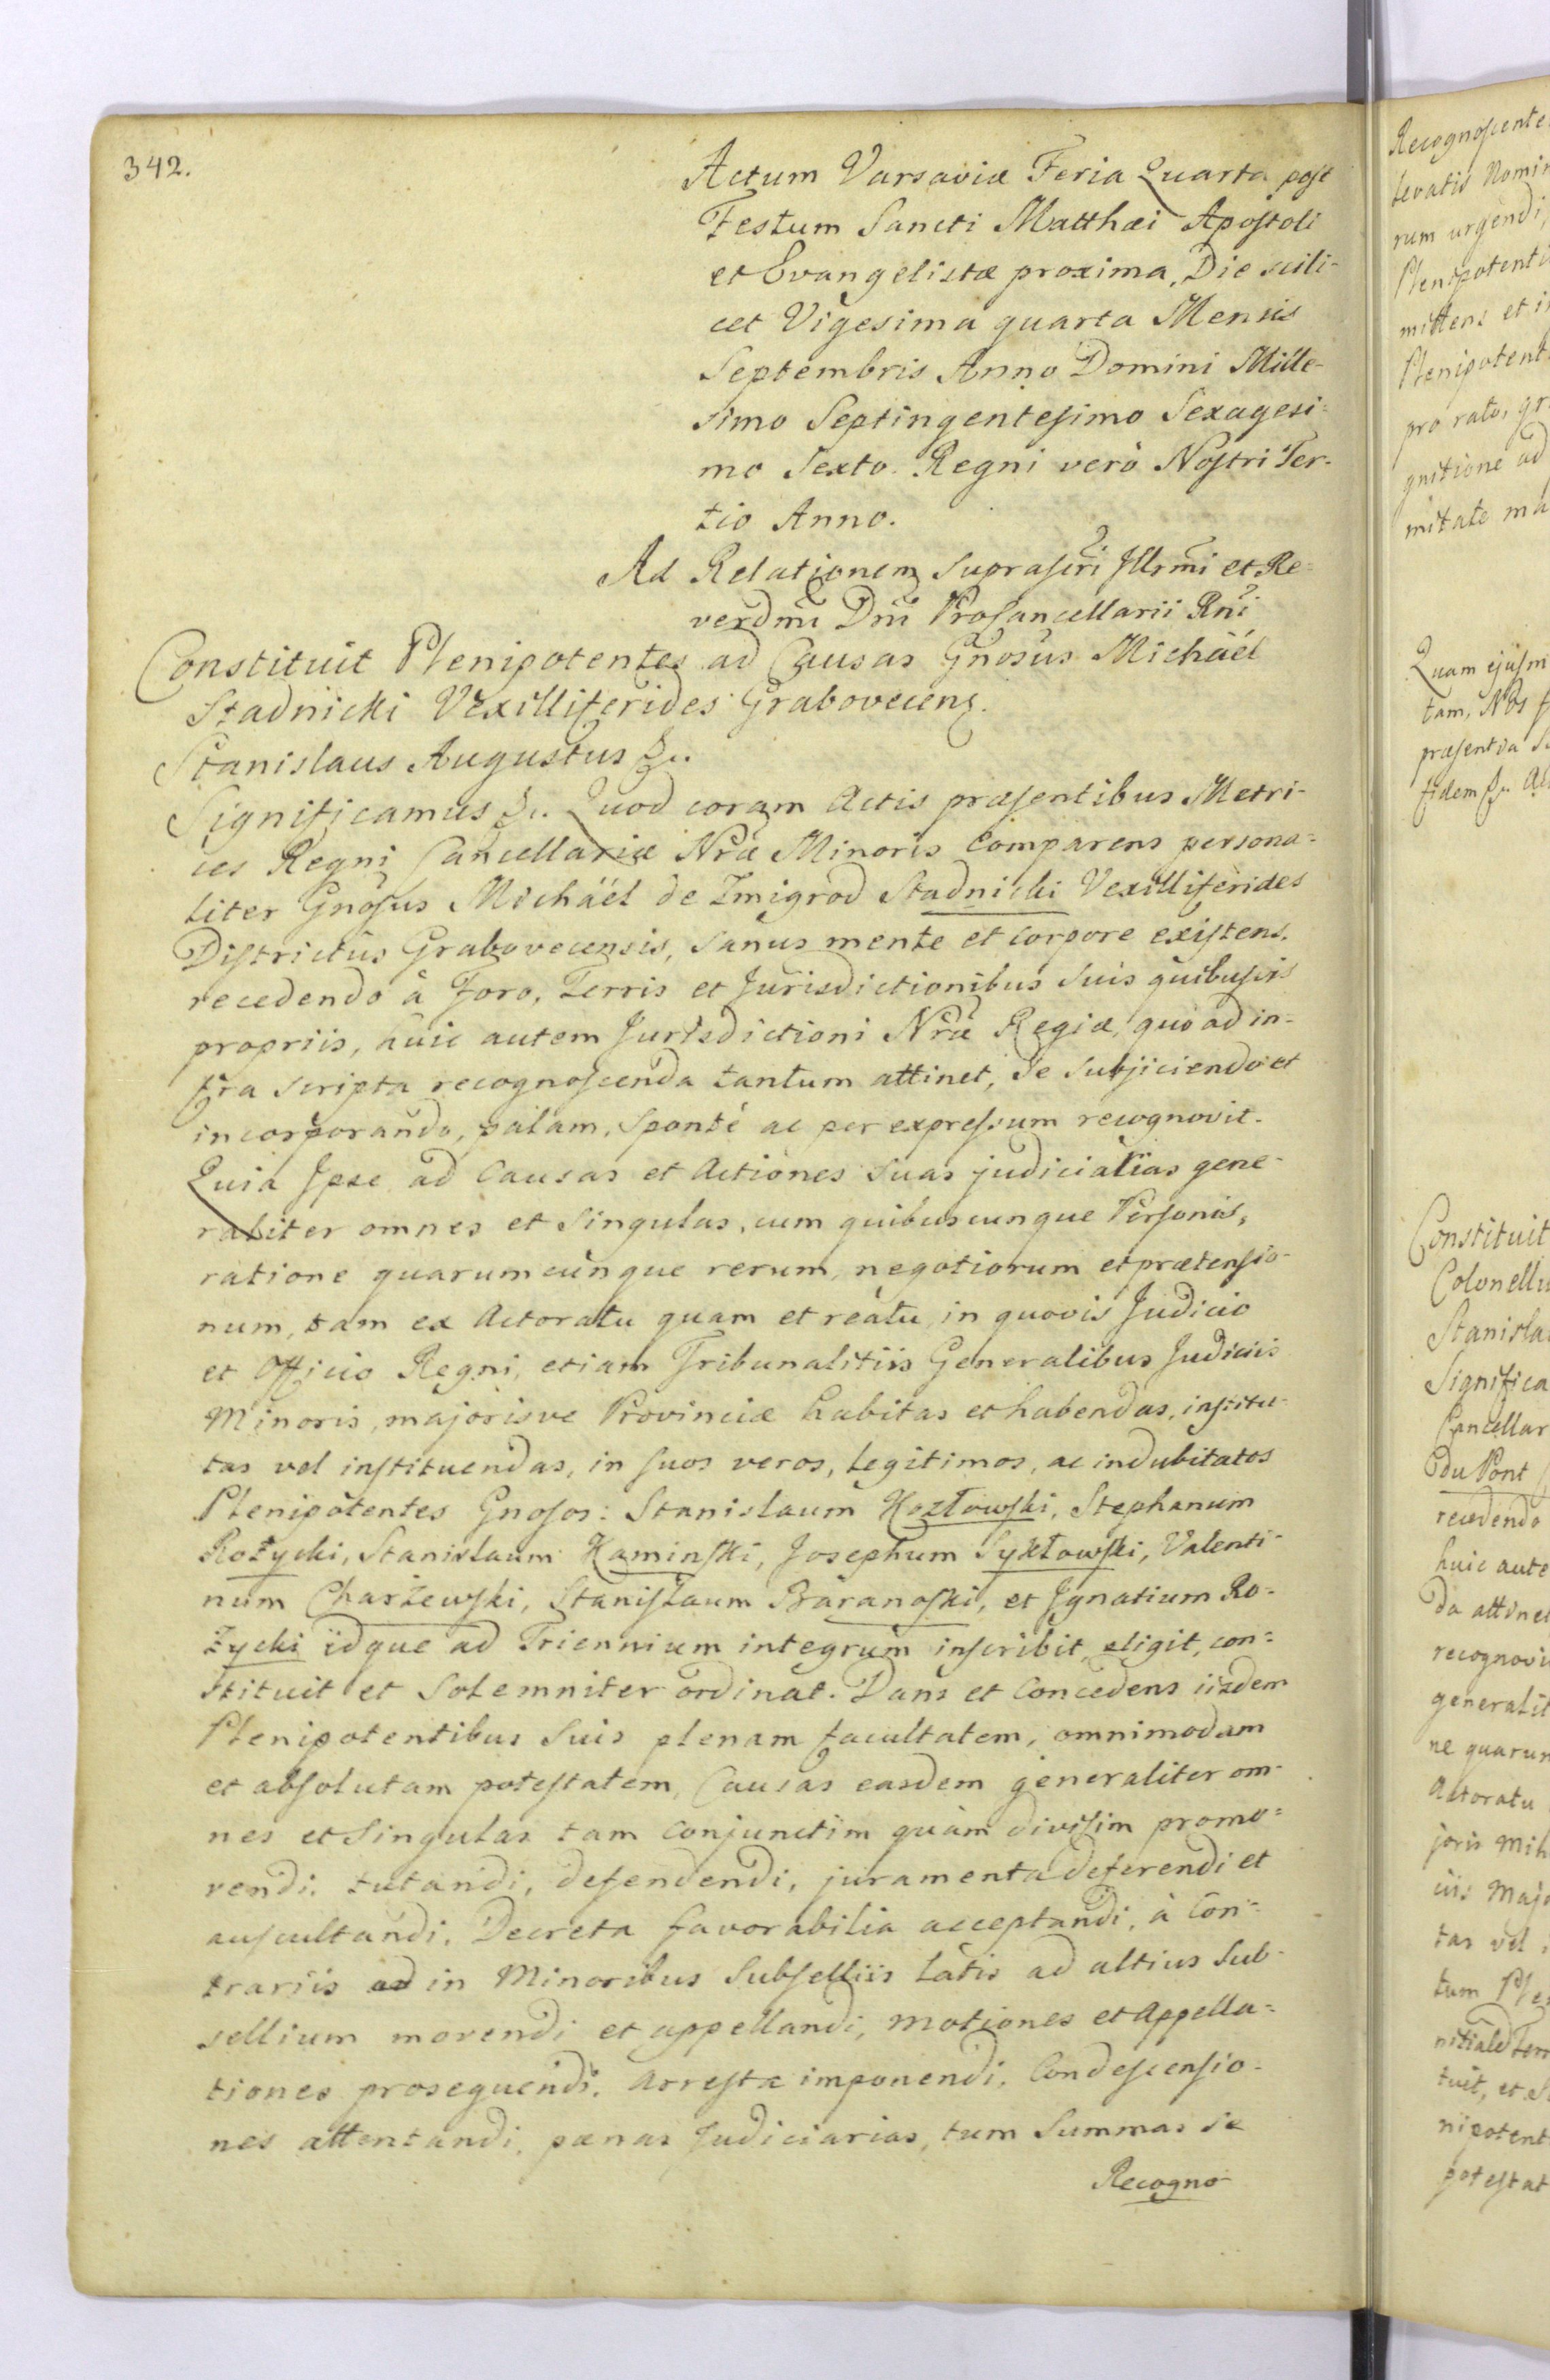 342.
Actum Varsaviæ Feria Quarta post
Festum Sancti Matthæi Apostoli
et Evangelistæ proxima, Die scili-
cet Vigesima quarta Mensis
Septembris Anno Domini Mille-
simo Septingentesimo Sexagesi-
mo Sexto. Regni verò Nostri Ter-
tio Anno.
Ad Relationem suprascri Illrmi et Re-
verdmi Dni ProCancellarii Rni
Constituit Plenipotentes ad Causas Gnosus Michäél
Stadnicki Vexilliferides Grabovecens.
Stanislaus Augustus &c.
Significamus &c. Quod coram Actis præsentibus Metri-
ces Regni Cancellariæ Nræ Minoris comparens persona-
liter Gnosus Michäél de Zmigrod Stadnicki Vexilliferides
Districtûs Grabovecensis, sanus mente et corpore existens,
recedendo à Foro, Terris et Jurisdictionibus suis quibusvis
propriis, huic autem Jurisdictioni Nræ Regiæ, quo ad in-
fra scripta recognoscenda tantum attinet, se subjiciendo et
incorporando, palam, sponté ac per expressum recognovit.
Quia Ipse ad Causas et Actiones suas judiciarias gene-
raliter omnes et singulas, cum quibuscunque Personis,
ratione quarumcunque rerum, negotiorum et prætensio-
num, tam ex Actoratu quam et reatu, in quovis Judicio
et Officio Regni, etiam Tribunalitiis Generalibus Judiciis
Minoris, majorisve Provinciæ habitas et habendas, institu-
tas vel instituendas, in suos veros, legitimos, ac indubitatos
Plenipotentes Gnosos: Stanislaum Kozłowski, Stephanum
Rożycki, Stanislaum Kaminski, Josephum Syxtowski, Valenti-
num Charżewski, Stanislaum Baranoski, et Ignatium Ro-
życki idque ad Triennium integrum inscribit, eligit, con-
stituit et solemniter ordinat. Dans et concedens iisdem
Plenipotentibus suis plenam facultatem, omnimodam
et absolutam potestatem, Causas easdem generaliter om-
nes et singulas tam conjunctim quàm divisim promo-
vendi, tutandi, defendendi, juramenta deferendi et
auscultandi, Decreta favorabilia acceptandi, à Con-
trariis ad in Minoribus Subselliis latis ad altius Sub-
sellium movendi et appellandi, motiones et Appella-
tiones prosequendi, Arresta imponendi, Condescensio-
nes attentandi, pænas Judiciarias, tum Summas se
Recogno-
Recognoscente
levatis Nomin
rum urgendi,
Plenipotenti
mittens et i
Plenipotent
pro rato, gr
gnitione ad
mitate ma
Quam ejusm
tam, Nos
præsentia
fidem &c.
Constituit
Colonellu
Stanisla
Significa
Cancellar
du Pont
recedendo
huic aute
da attinet
recognovi
generalit
ne quarum
Actoratu
joris
ciis Majo
tas vel
tum Ple
tuit, et
nipotent
potestat